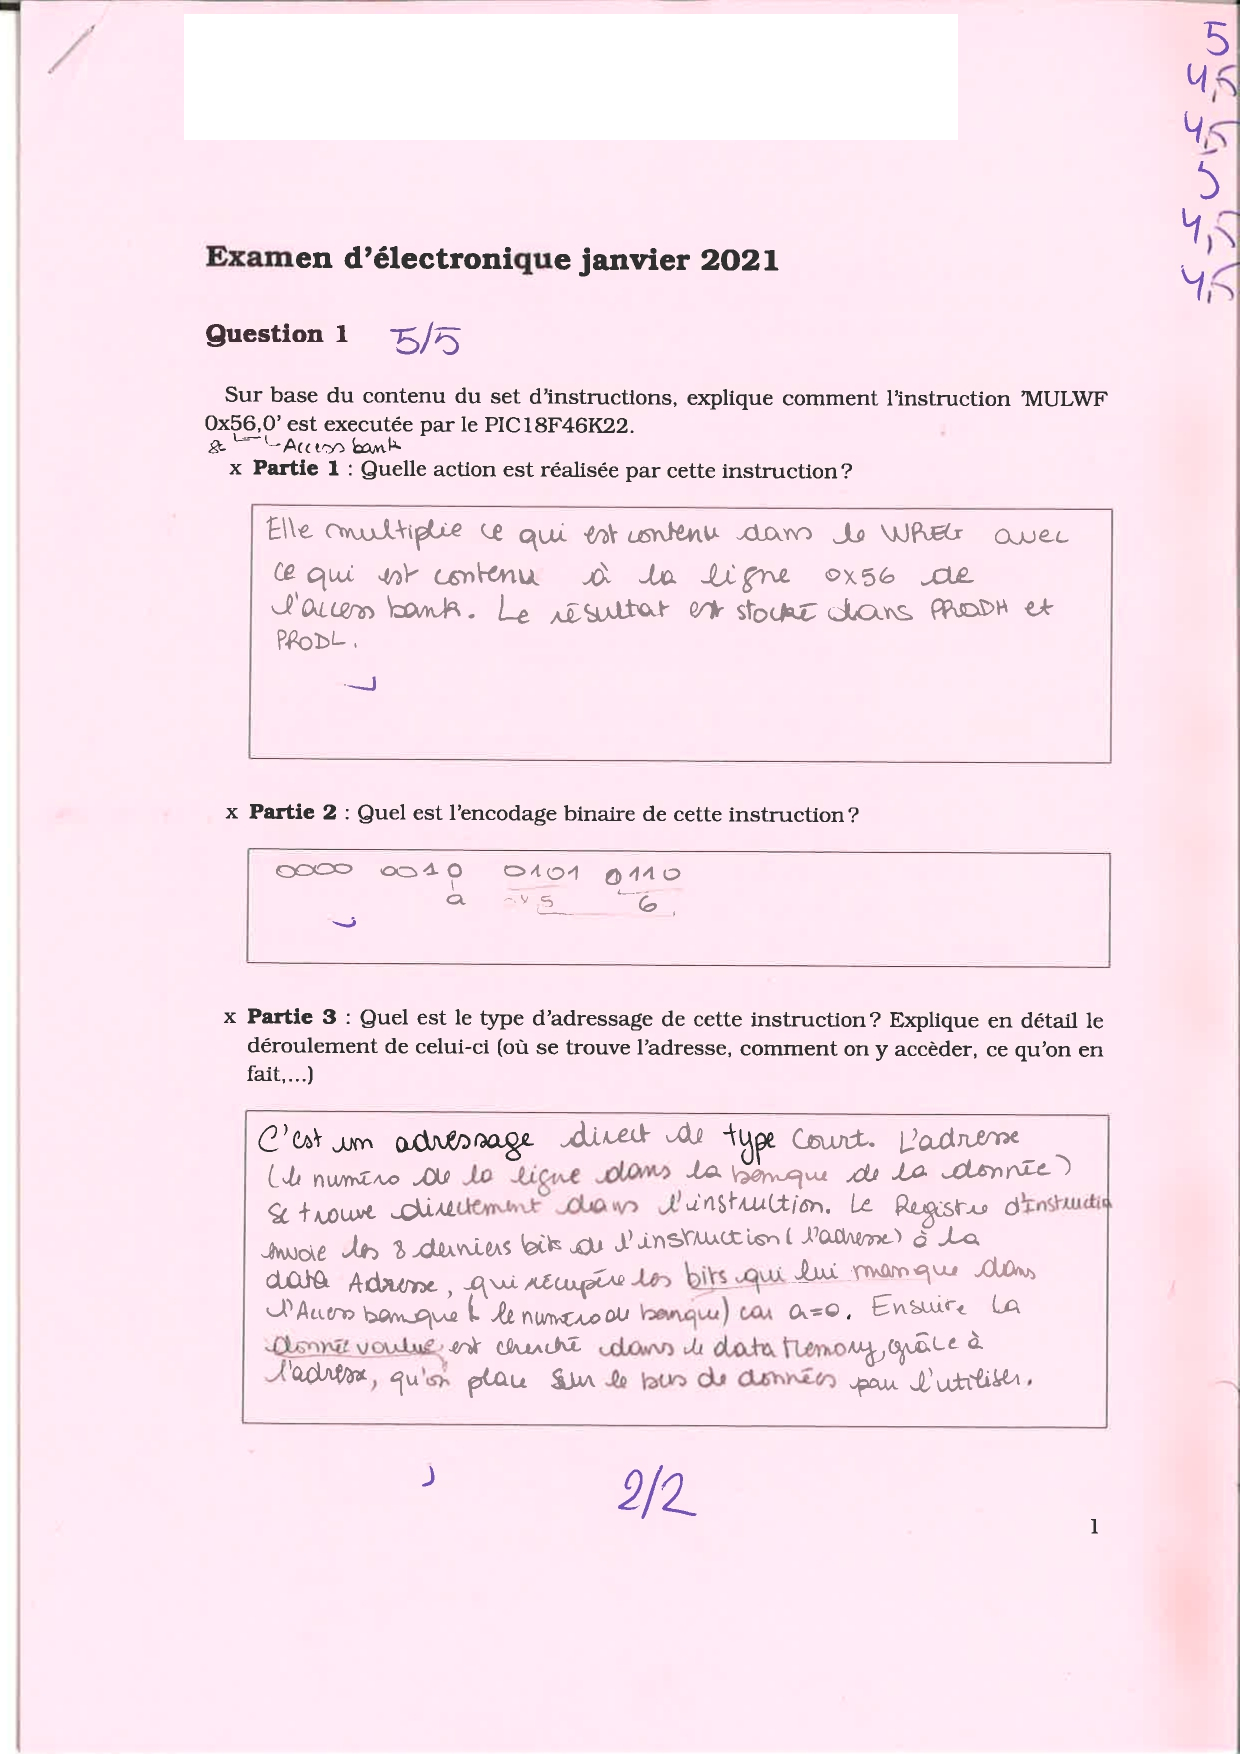 5
4,5
4,5
5
4,5
4,5
Examen d'électronique janvier 2021
Question 1 5/5
Sur base du contenu du set d'instructions, explique comment l'instruction 'MULWF
0x56,0' est executée par le PIC18F46K22.
Access bank
x Partie 1 : Quelle action est réalisée par cette instruction ?
Elle multiplie ce qui est contenu dans le WREG avec
ce qui est contenu à la ligne 0x56 de
l'access bank. Le résultat est stocké dans PRODH et
PRODL.
x Partie 2 : Quel est l'encodage binaire de cette instruction ?
0000 0010 0101 0110
a 5 6
x Partie 3 : Quel est le type d'adressage de cette instruction ? Explique en détail le
déroulement de celui-ci (où se trouve l'adresse, comment on y accèder, ce qu'on en
fait,...)
C'est un adressage direct de type court. L'adresse
(le numéro de la ligne dans la banque de la donnée)
se trouve directement dans l'instruction. Le Registre d'Instructio
envoie les 8 derniers bits de l'instruction (l'adresse) à la
data Adresse, qui récupère les bits qui lui manque dans
l'Access banque (le numéro de banque) car a=0. Ensuite la
donnée voulue est cherché dans le data Memory, grâce à
l'adresse, qu'on place sur le bus de données pour l'utiliser.
2/2
1